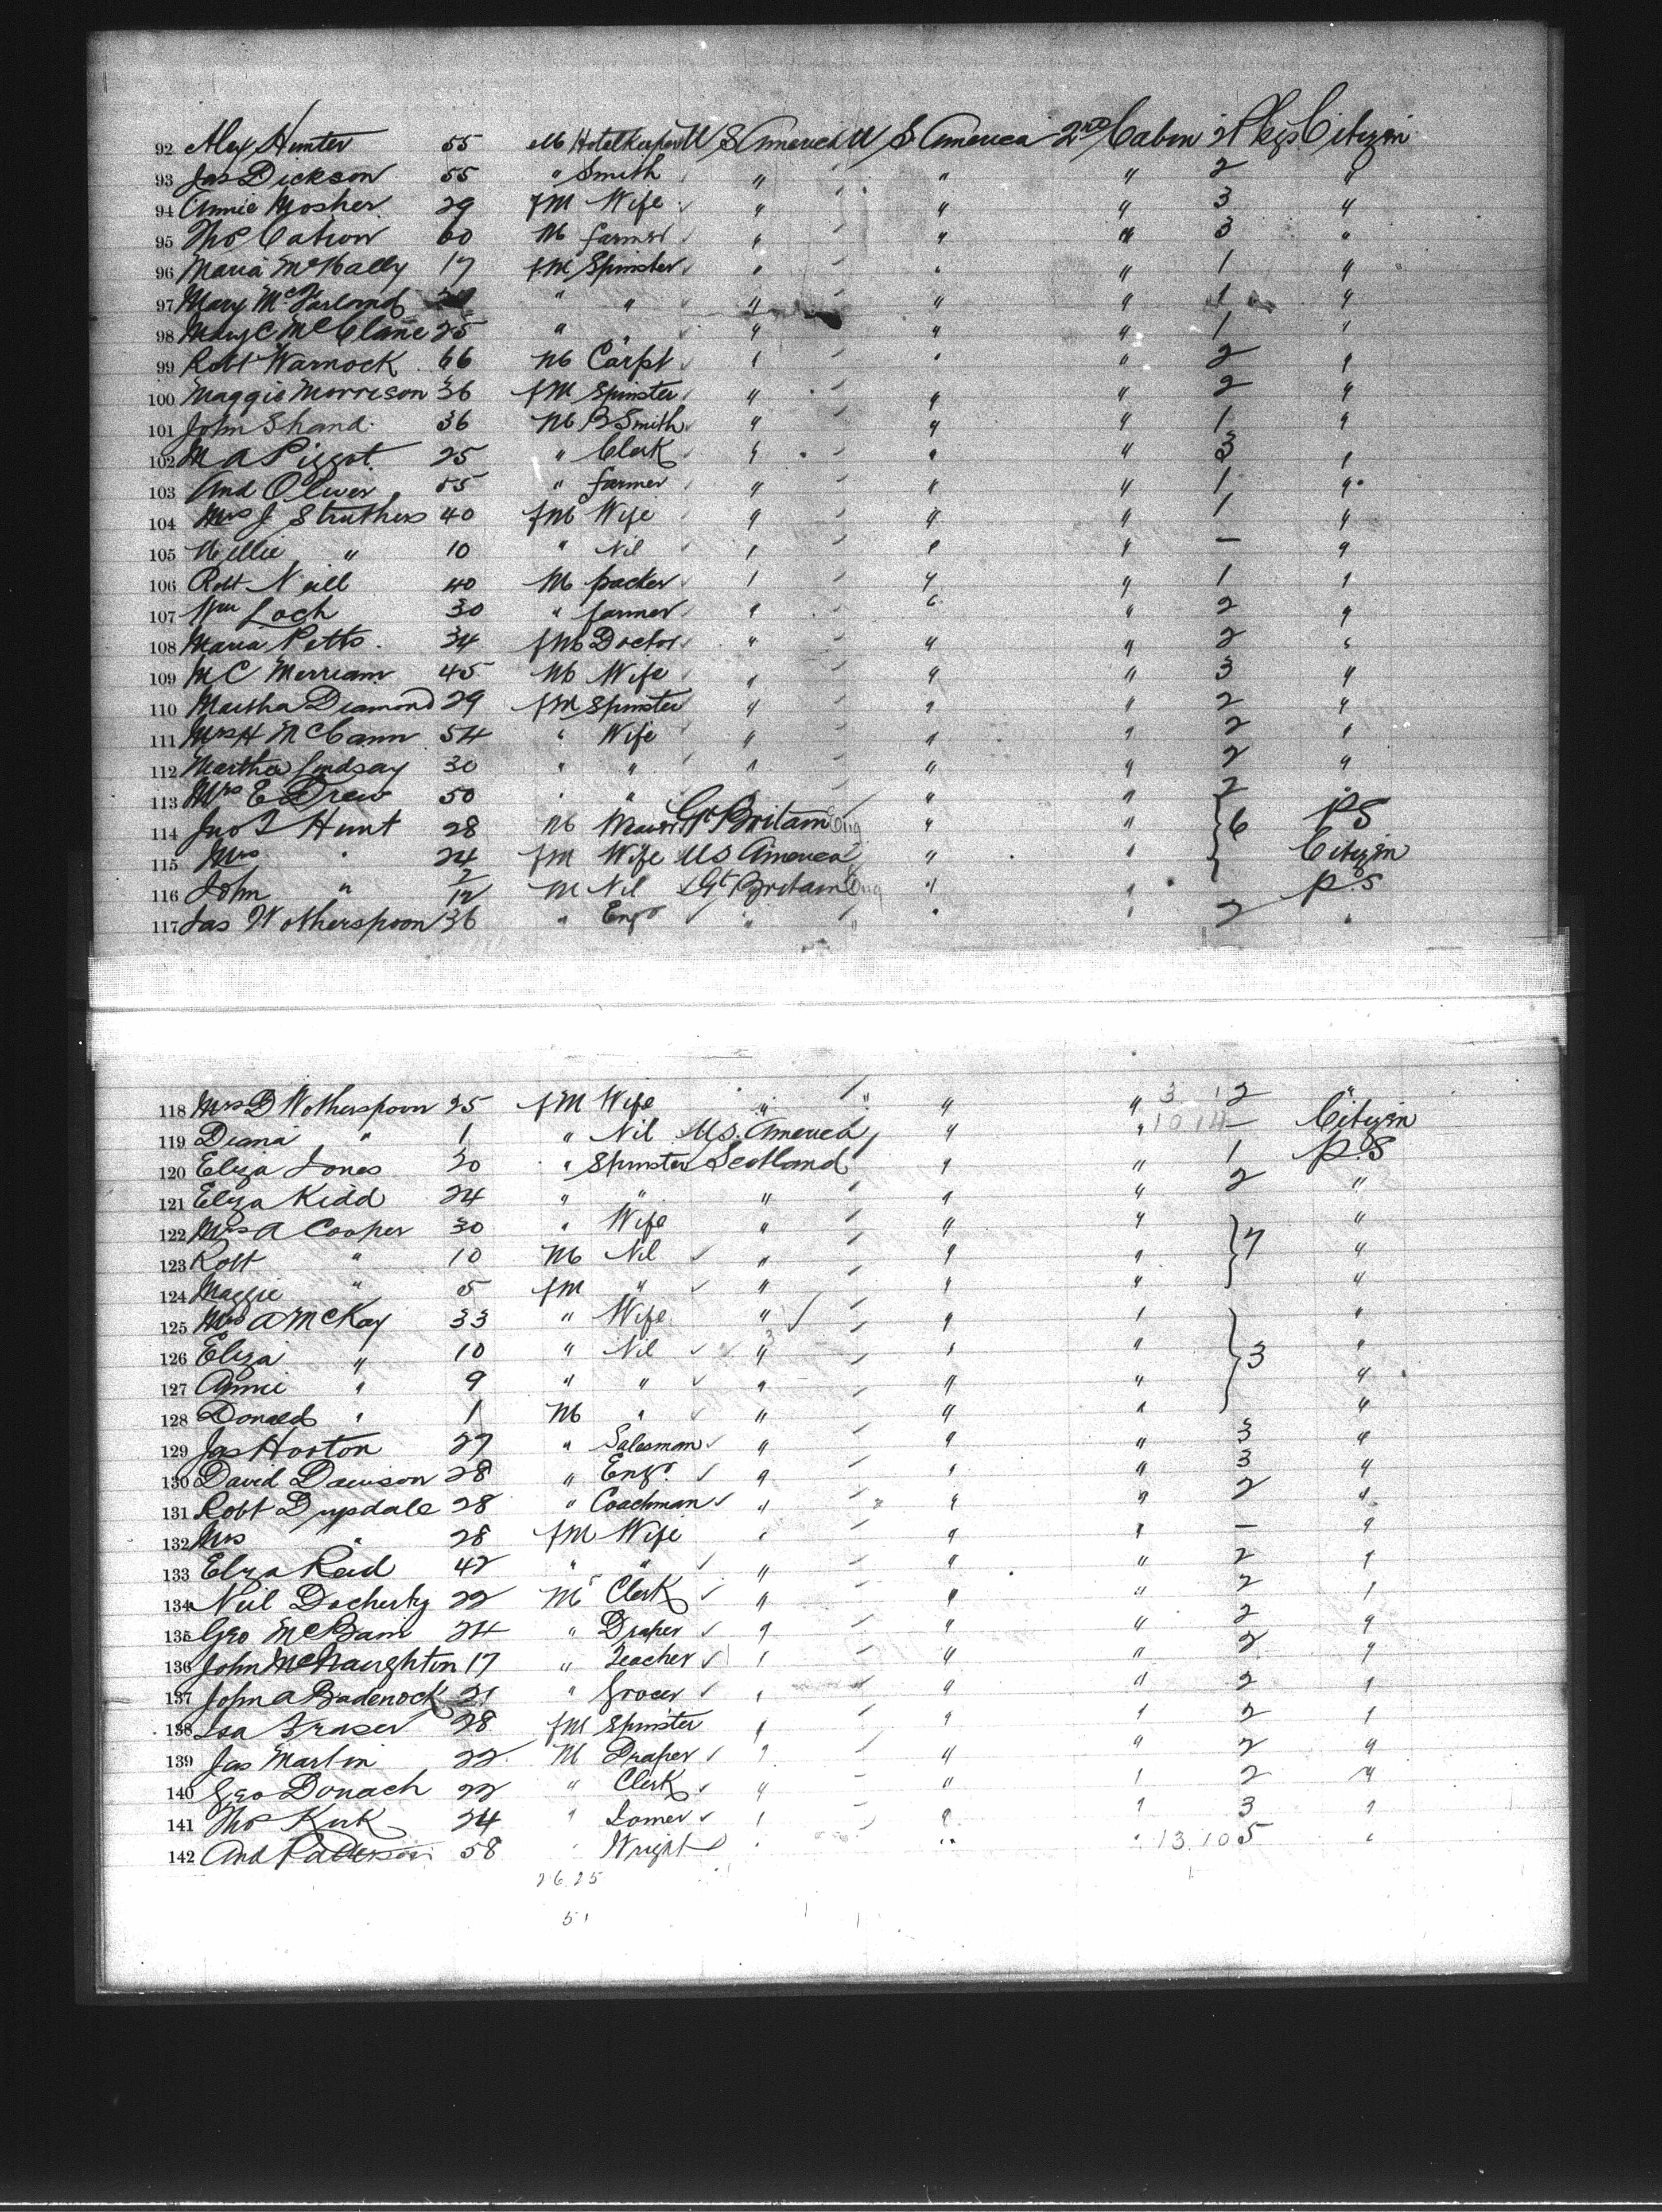 92 Alex Hunter 55 M Hotelkeeper U S America U S America 2nd Cabin 2 Pkgs Citizen
93 Jas Dickson 55 " Smith " " " 2 "
94 Annie Mosher 29 fM Wife " " " 3 "
95 Thos Cation 60 M farmer " " " 3 "
96 Maria McNally 17 fM Spinster " " " 1 "
97 Mary McFarland " " " " " 1 "
98 Mary C McClane 25 " " " " " 1 "
99 Robt Warnock 66 M Carpt " " " 2 "
100 Maggie Morrison 36 fM Spinster " " " 2 "
101 John Shand 36 M B Smith " " " 1 "
102 M A Piggot 25 " Clerk " " " 3 "
103 And Oliver 55 " farmer " " " 1 "
104 Mrs J Struthers 40 fM Wife " " " 1 "
105 Nellie " 10 " Nil " " " — "
106 Robt Neill 40 M packer " " " 1 "
107 Wm Loch 30 " farmer " " " 2 "
108 Maria Petts 34 fM Doctor " " " 2 "
109 M C Merriam 45 M Wife " " " 3 "
110 Martha Diamond 29 fM Spinster " " " 2 "
111 Mrs H McCann 54 " Wife " " " 2 "
112 Martha Lindsay 30 " " " " " 2 "
113 Mrs E Drew 50 " " " " 2 "
114 Jno Hunt 28 M Gt Britain Eng " " 6 P S
115 Mrs " 24 fM Wife US America " " Citizen
116 John " 7/12 M Nil Gt Britain Eng " " P.S
117 Jas Wotherspoon 36 " Engr " " " " 2 "
118 Mrs D Wotherspoon 25 fM Wife " " " " 3 12 "
119 Diana " 1 " Nil U.S. America " " 10 14 — Citizen
120 Eliza Jones 20 " Spinster Scotland " " 1 P.S
121 Eliza Kidd 24 " " " " " 2 "
122 Mrs A Cooper 30 " Wife " " " "
123 Robt " 10 M Nil " " " 7 "
124 Maggie " 5 fM " " " " "
125 Mrs A McKay 33 " Wife " " " "
126 Eliza " 10 " Nil 3 " " " 3 "
127 Annie " 9 " " " " " "
128 Donald " 1 M " " " " "
129 Jas Horton 27 " Salesman " " " 3 "
130 David Dawson 28 " Engr. " " " 3 "
131 Robt Drysdale 28 " Coachman " " " 2 "
132 Mrs " 28 fM Wife " " " — "
133 Eliza Reid 42 " " " " " 2 "
134 Neil Docherty 22 M Clerk " " " 2 "
135 Geo McBain 24 " Draper " " " 2 "
136 John McNaughton 17 " Teacher " " " 2 "
137 John A Badenock 21 " Grocer " " " 2 "
138 Isa Fraser 28 fM Spinster " " " 2 "
139 Jas Martin 22 M Draper " " " 2 "
140 Geo Donach 22 " Clerk " " " 2 "
141 Thos Kirk 24 " " " " 3 "
142 And Patterson 58 " Wright " " " 13 10 5 "
26.25
51